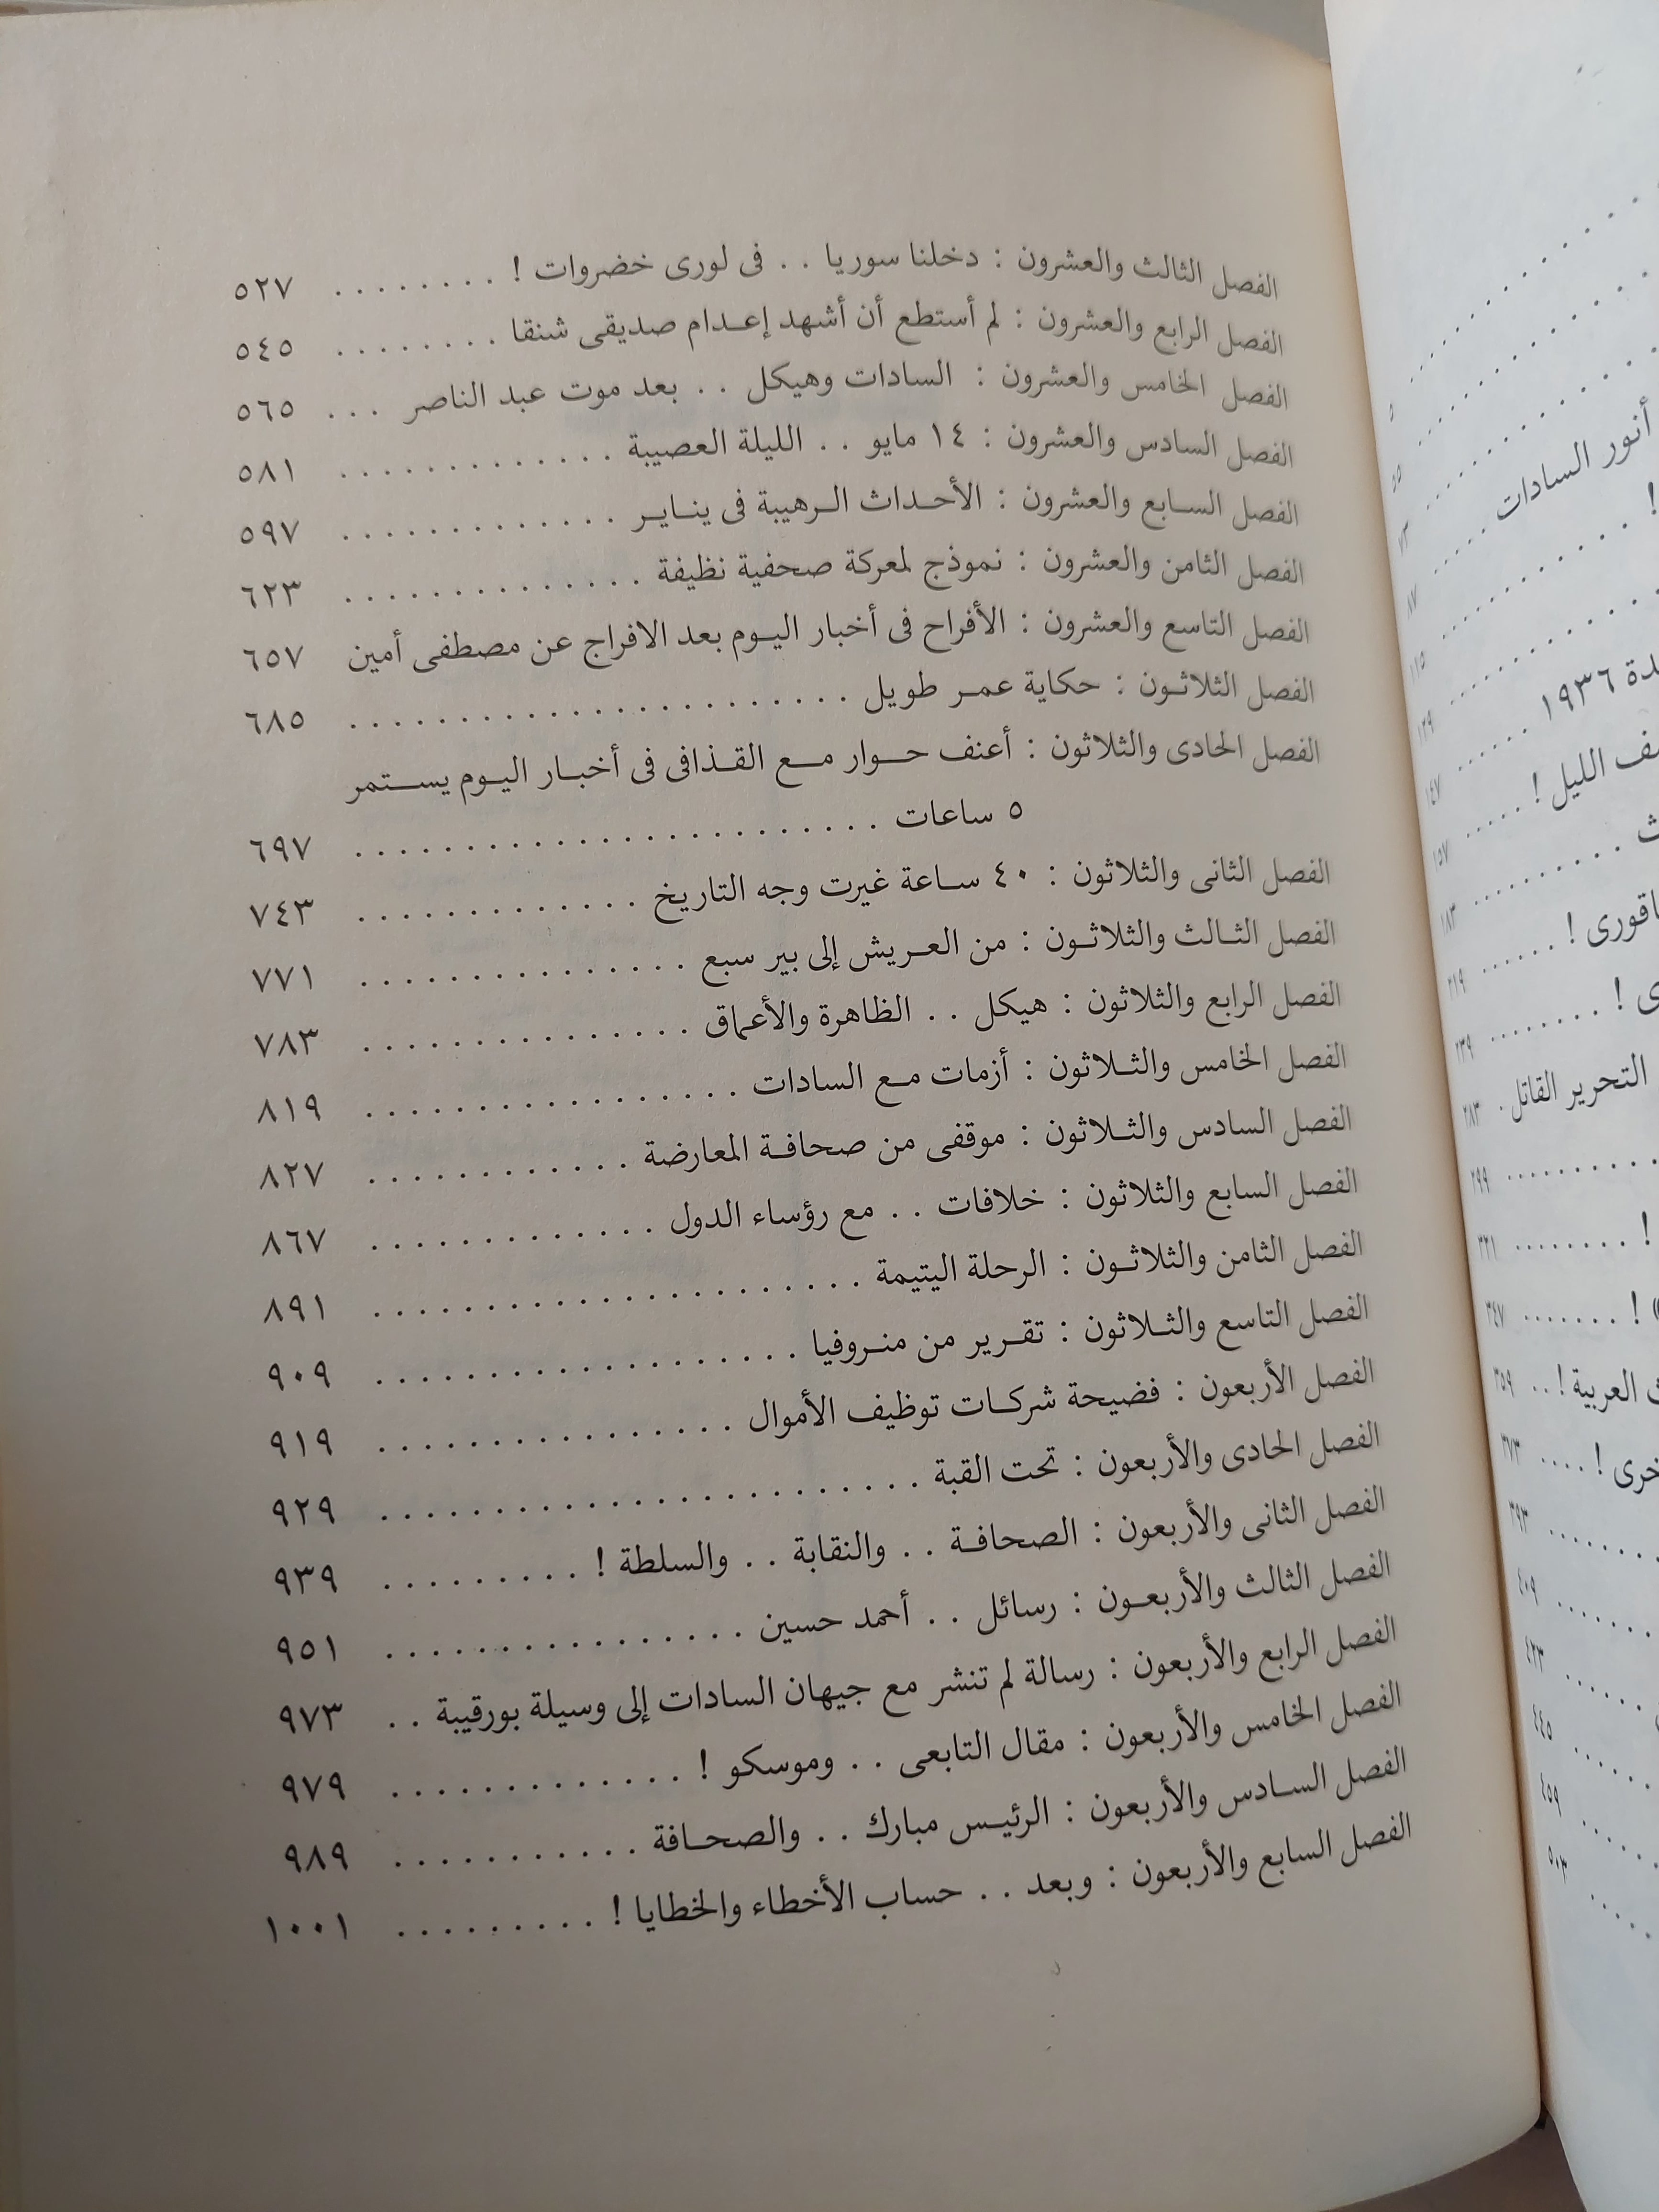 الفصل الثالث والعشرون : دخلنا سوريا . . فى لورى خضروات ! . . . . . . . . ٥٢٧
الفصل الرابع والعشرون : لم أستطع أن أشهد إعدام صديقى شنقا . . . . . . . . ٥٤٥
الفصل الخامس والعشرون : السادات وهيكل . . بعد موت عبد الناصر . . . ٥٦٥
الفصل السادس والعشرون : ١٤ مايو . . الليلة العصيبة . . . . . . . . . . . . . ٥٨١
الفصل السابع والعشرون : الأحداث الرهيبة فى يناير . . . . . . . . . . . . . ٥٩٧
الفصل الثامن والعشرون : نموذج لمعركة صحفية نظيفة . . . . . . . . . . . . . . ٦٢٣
الفصل التاسع والعشرون : الأفراح فى أخبار اليوم بعد الافراج عن مصطفى أمين ٦٥٧
الفصل الثلاثون : حكاية عمر طويل . . . . . . . . . . . . . . . . . . . . . . . ٦٨٥
الفصل الحادى والثلاثون : أعنف حوار مع القذافى فى أخبار اليوم يستمر
٥ ساعات . . . . . . . . . . . . . . . . . . . . . . . . ٦٩٧
الفصل الثانى والثلاثون : ٤٠ ساعة غيرت وجه التاريخ . . . . . . . . . . . . . ٧٤٣
الفصل الثالث والثلاثون : من العريش إلى بير سبع . . . . . . . . . . . . . . . ٧٧١
الفصل الرابع والثلاثون : هيكل . . الظاهرة والأعماق . . . . . . . . . . . . . . . ٧٨٣
الفصل الخامس والثلاثون : أزمات مع السادات . . . . . . . . . . . . . . . . . ٨١٩
الفصل السادس والثلاثون : موقفى من صحافة المعارضة . . . . . . . . . . . . ٨٢٧
الفصل السابع والثلاثون : خلافات . . مع رؤساء الدول . . . . . . . . . . . . . ٨٦٧
الفصل الثامن والثلاثون : الرحلة اليتيمة . . . . . . . . . . . . . . . . . . . . . . ٨٩١
الفصل التاسع والثلاثون : تقرير من منروفيا . . . . . . . . . . . . . . . . . . . ٩٠٩
الفصل الأربعون : فضيحة شركات توظيف الأموال . . . . . . . . . . . . . . . . ٩١٩
الفصل الحادى والأربعون : تحت القبة . . . . . . . . . . . . . . . . . . . . . . . . ٩٢٩
الفصل الثانى والأربعون : الصحافة . . والنقابة . . والسلطة ! . . . . . . . . . ٩٣٩
الفصل الثالث والأربعون : رسائل . . أحمد حسين . . . . . . . . . . . . . . . . ٩٥١
الفصل الرابع والأربعون : رسالة لم تنشر مع جيهان السادات إلى وسيلة بورقيبة . . ٩٧٣
الفصل الخامس والأربعون : مقال التابعى . . وموسكو ! . . . . . . . . . . . . . ٩٧٩
الفصل السادس والأربعون : الرئيس مبارك . . والصحافة . . . . . . . . . . . ٩٨٩
الفصل السابع والأربعون : وبعد . . حساب الأخطاء والخطايا ! . . . . . . . . . ١٠٠١
أنور السادات . . . . . ٨٧
١٩٣٦ . . . . . ١٤٧
الليل ! . . . . . ١٥٧
التحرير القاتل . ٢٨٣
العربية ! . . ٣٥٩